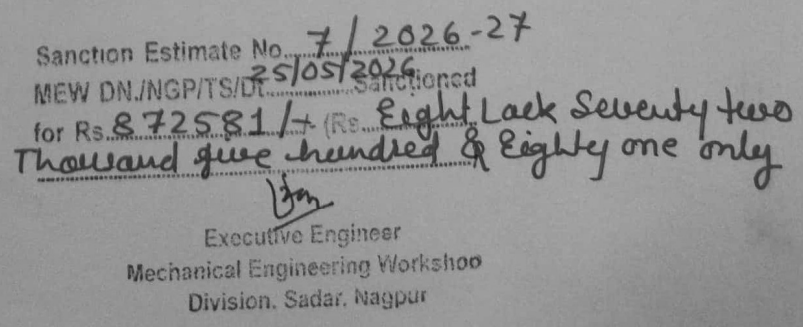 Sanction Estimate No. 7/2026-27
MEW DN./NGP/TS/Dt. 25/05/2026 Sanctioned
for Rs. 872581/- (Rs. Eight Lack Seventy two
Thousand five hundred & Eighty one only
Executive Engineer
Mechanical Engineering Workshop
Division. Sadar. Nagpur